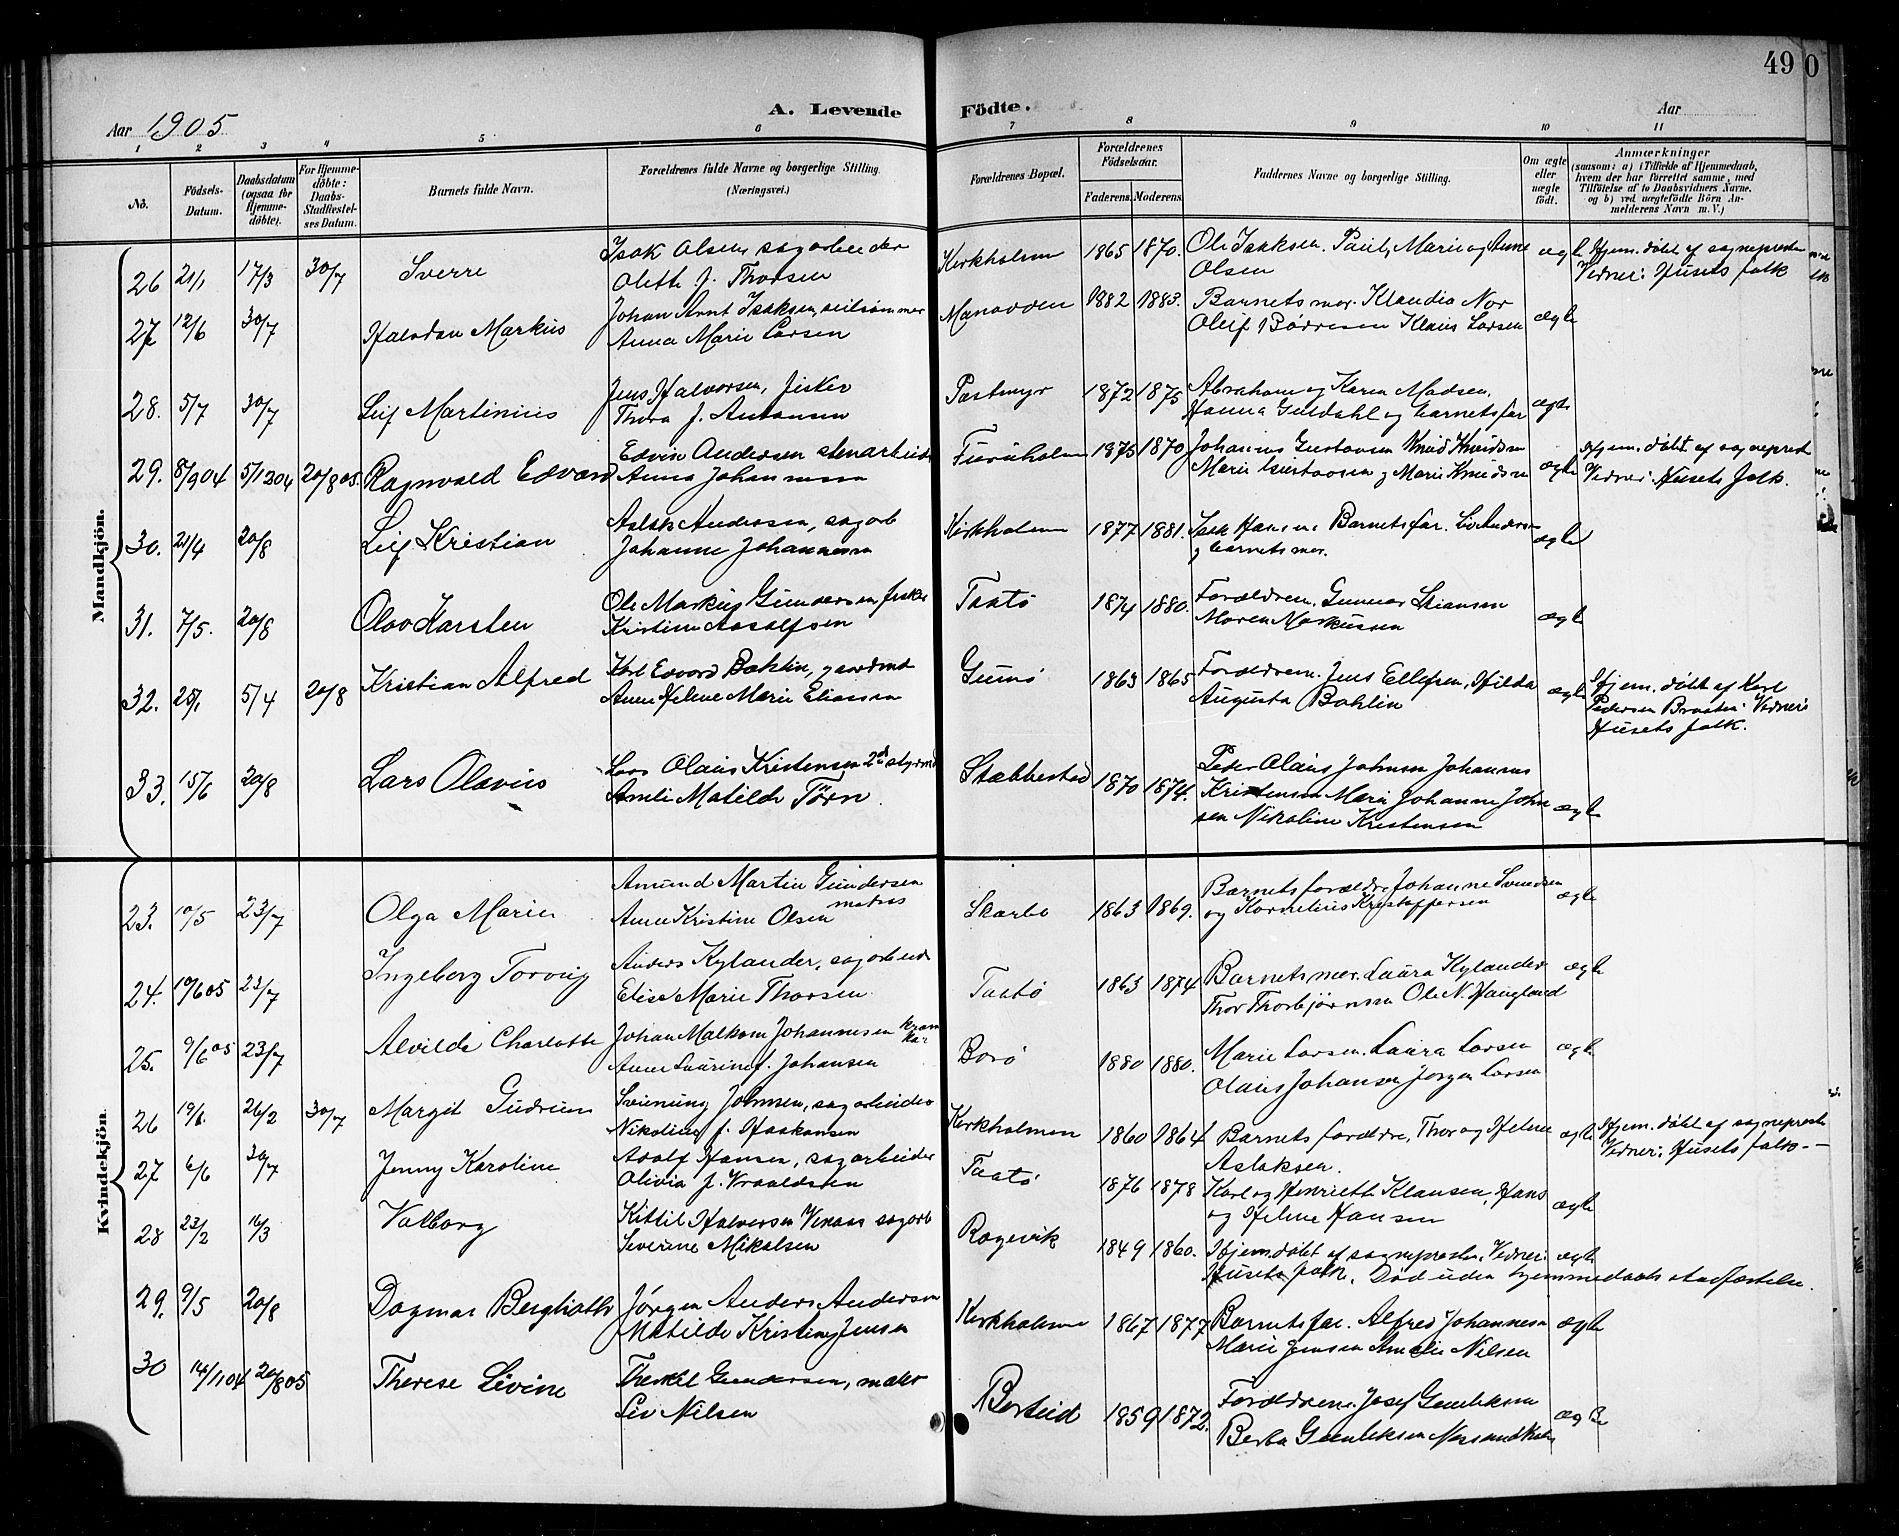 49
0
Aar 1905
A. Levende
Födte.
Aar
1 2 3 4 5 6 7 8 9 10 11
No.
Födsels-Datum.
Daabsdatum (ogsaa for Hjemme-döbte).
For Hjemme-döbte: Daabs-Stadfæstel-ses Datum.
Barnets fulde Navn.
Forældrenes fulde Navne og borgerlige Stilling.
(Næringsvei.)
Forældrenes Bopæl.
Forældrenes Födselsaar.
Faderens. Moderens.
Faddernes Navne og borgerlige Stilling.
Om ægte eller uægte födt.
Anmærkninger
(saasom: a) i Tilfælde af Hjemmedaab,
hvem der har forrettet samme, med
Tilföielse af to Daabsvidners Navne.
og b) ved uægtefödte Börn An-
melderens Navn m. V.)
Mandkjön.
26 21/1 17/3 30/7 Sverre
Isak Olsen, sagarbeider
Oleth J. Thorsen
Kirkholmen 1865 1870.
Ole Isaksen. Paul, Marie og Anne
Olsen
ægte
Hjem. döbt af sognepresten
Vidner: Husets folk
27 12/6 30/7 Halvdan Markus
Johan Arnt Isaksen, seilsømmer
Anna Marie Larsen
Manodden 1882 1883.
Barnets mor. Klaudia Nor
Oluf Børresen Klaus Larsen
ægte
28. 5/7 30/7 Leif Martinius
Jens Halvorsen, fisker
Thora J. Antonsen
Pastmyr 1872 1875
Abraham og Karen Madsen.
Hanna Guldahl og barnets far
ægte
29. 8/9 04 5/12 04 20/8 05. Ragnvald Edvard
Edvin Andersen stenarbeid
Anna Johannessen
Furuholmen 1875 1870
Johannes Gustavsen Knud Knudsen
Marie Gustavsen og Marie Knudsen
ægte
Hjem. döbt af sogneprest
Vidner: Husets folk.
30. 21/4 20/8 Leif Kristian
Aslak Andersen, sagarb
Johanne Johannessen
Kirkholmen 1877 1881.
Isak Hansen Barnets far. Liv Andersen
og barnets mor.
ægte
31. 7/5. 20/8 Olav Karsten
Ole Markus Gundersen fisker
Kristine Aasolfsen
Taatø 1874 1880.
Forældrene. Gunnar Stiansen
Maren Markussen
ægte
32. 25/1 5/4 20/8 Kristian Alfred
Karl Edvard Bohlin, gaardmd
Anne Helene Marie Eliassen
Gumø 1863 1865
Forældrene. Jens Ellefsen, Hilda
Augusta Bohlin
ægte
Hjem. döbt af Karl
Pedersen Braaten. Vidner:
Husets folk.
33. 15/6 20/8 Lars Olavius
Lars Olaus Kristensen 2den styrmd
Amli Matilde Törn.
Stabbestad 1870 1874.
Peder Olaus Johnsen Johannes
Kristensen Marie Johanne John
sen Nikoline Kristensen
ægte
Kvindekjön.
23. 10/5 23/7 Olga Marie
Amund Martin Gundersen
matros
Anne Kristine Olsen
Skarbo 1863 1869.
Barnets forældre Johanne Svendsen
og Kornelius Kristoffersen
ægte
24. 10/6 05 23/7 Ingeborg Torvig
Anders Kylander, sagarbeid
Elise Marie Thorsen
Taatø 1863 1874
Barnets mor. Laura Kylander
Thor Thorbjørnsen Ole N. Haugland
ægte
25. 9/6 05 23/7 Alvilde Charlotte
Johan Malkom Johannesen
Anne Laurine f. Johansen
Borø 1880 1880.
Marie Larsen. Laura Larsen
Olaus Johansen Jørgen Larsen
ægte
26 19/1. 26/2 30/7 Margit Gudrun
Sveinung Johnsen, sagarbeider
Nikoline f. Haakonsen
Kirkholmen 1860 1864
Barnets forældre, Thor og Helene
Aslaksen.
ægte
Hjem. döbt af sogneprest
Vidner: Husets folk. —
27 6/6 30/7 Jenny Karoline
Adolf Hansen, sagarbeider
Olivia J. Vraaldsen
Taatø 1876 1878
Karl og Henriette Klausen, Hans
og Helene Hansen
ægte
28 23/2 16/3 Valborg
Kittil Halvorsen sagarb
Severine Mikalsen
Rogevik 1849 1860.
Hjem. döbt af sognepresten. Vidner:
Husets folk. Død uden hjemmedaabs stadfæstelse.
ægte
29. 9/5 20/8 Dagmar Bergliot
Jørgen Anders Andersen
Matilde Kristine Jensen
Kirkholmen 1867 1877
Barnets far. Alfred Johannesen
Marie Jensen Amalie Nilsen
ægte
30 14/11 04 20/8 05 Therese Livine
Therkel Gundersen, maler
Liv Nilsen
Berteid 1859 1872.
Forældrene. Josef Gundersen
ægte